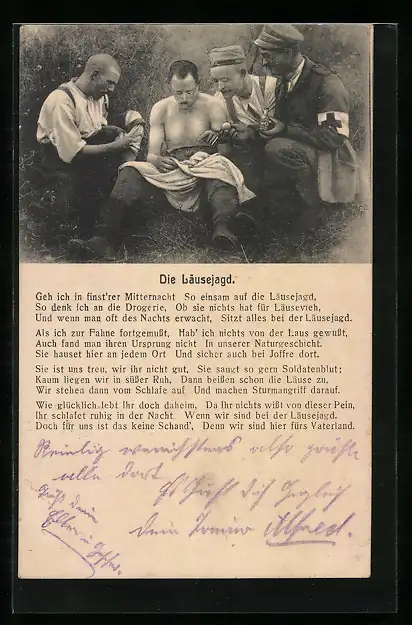 Die Läusejagd.
Geh ich in finst'rer Mitternacht So einsam auf die Läusejagd,
So denk ich an die Drogerie, Ob sie nichts hat für Läusevieh,
Und wenn man oft des Nachts erwacht, Sitzt alles bei der Läusejagd.
Als ich zur Fahne fortgemußt, Hab' ich nichts von der Laus gewußt,
Auch fand man ihren Ursprung nicht In unserer Naturgeschicht.
Sie hauset hier an jedem Ort Und sicher auch bei Joffre dort.
Sie ist uns treu, wir ihr nicht gut, Sie saugt so gern Soldatenblut;
Kaum liegen wir in süßer Ruh, Dann beißen schon die Läuse zu,
Wir stehen dann vom Schlafe auf Und machen Sturmangriff darauf.
Wie glücklich lebt Ihr doch daheim, Da Ihr nichts wißt von dieser Pein,
Ihr schlafet ruhig in der Nacht. Wenn wir sind bei der Läusejagd.
Doch für uns ist das keine Schand', Denn wir sind hier fürs Vaterland.
alle dort
Es grüßt dich herzlich
Dein
Alfred.